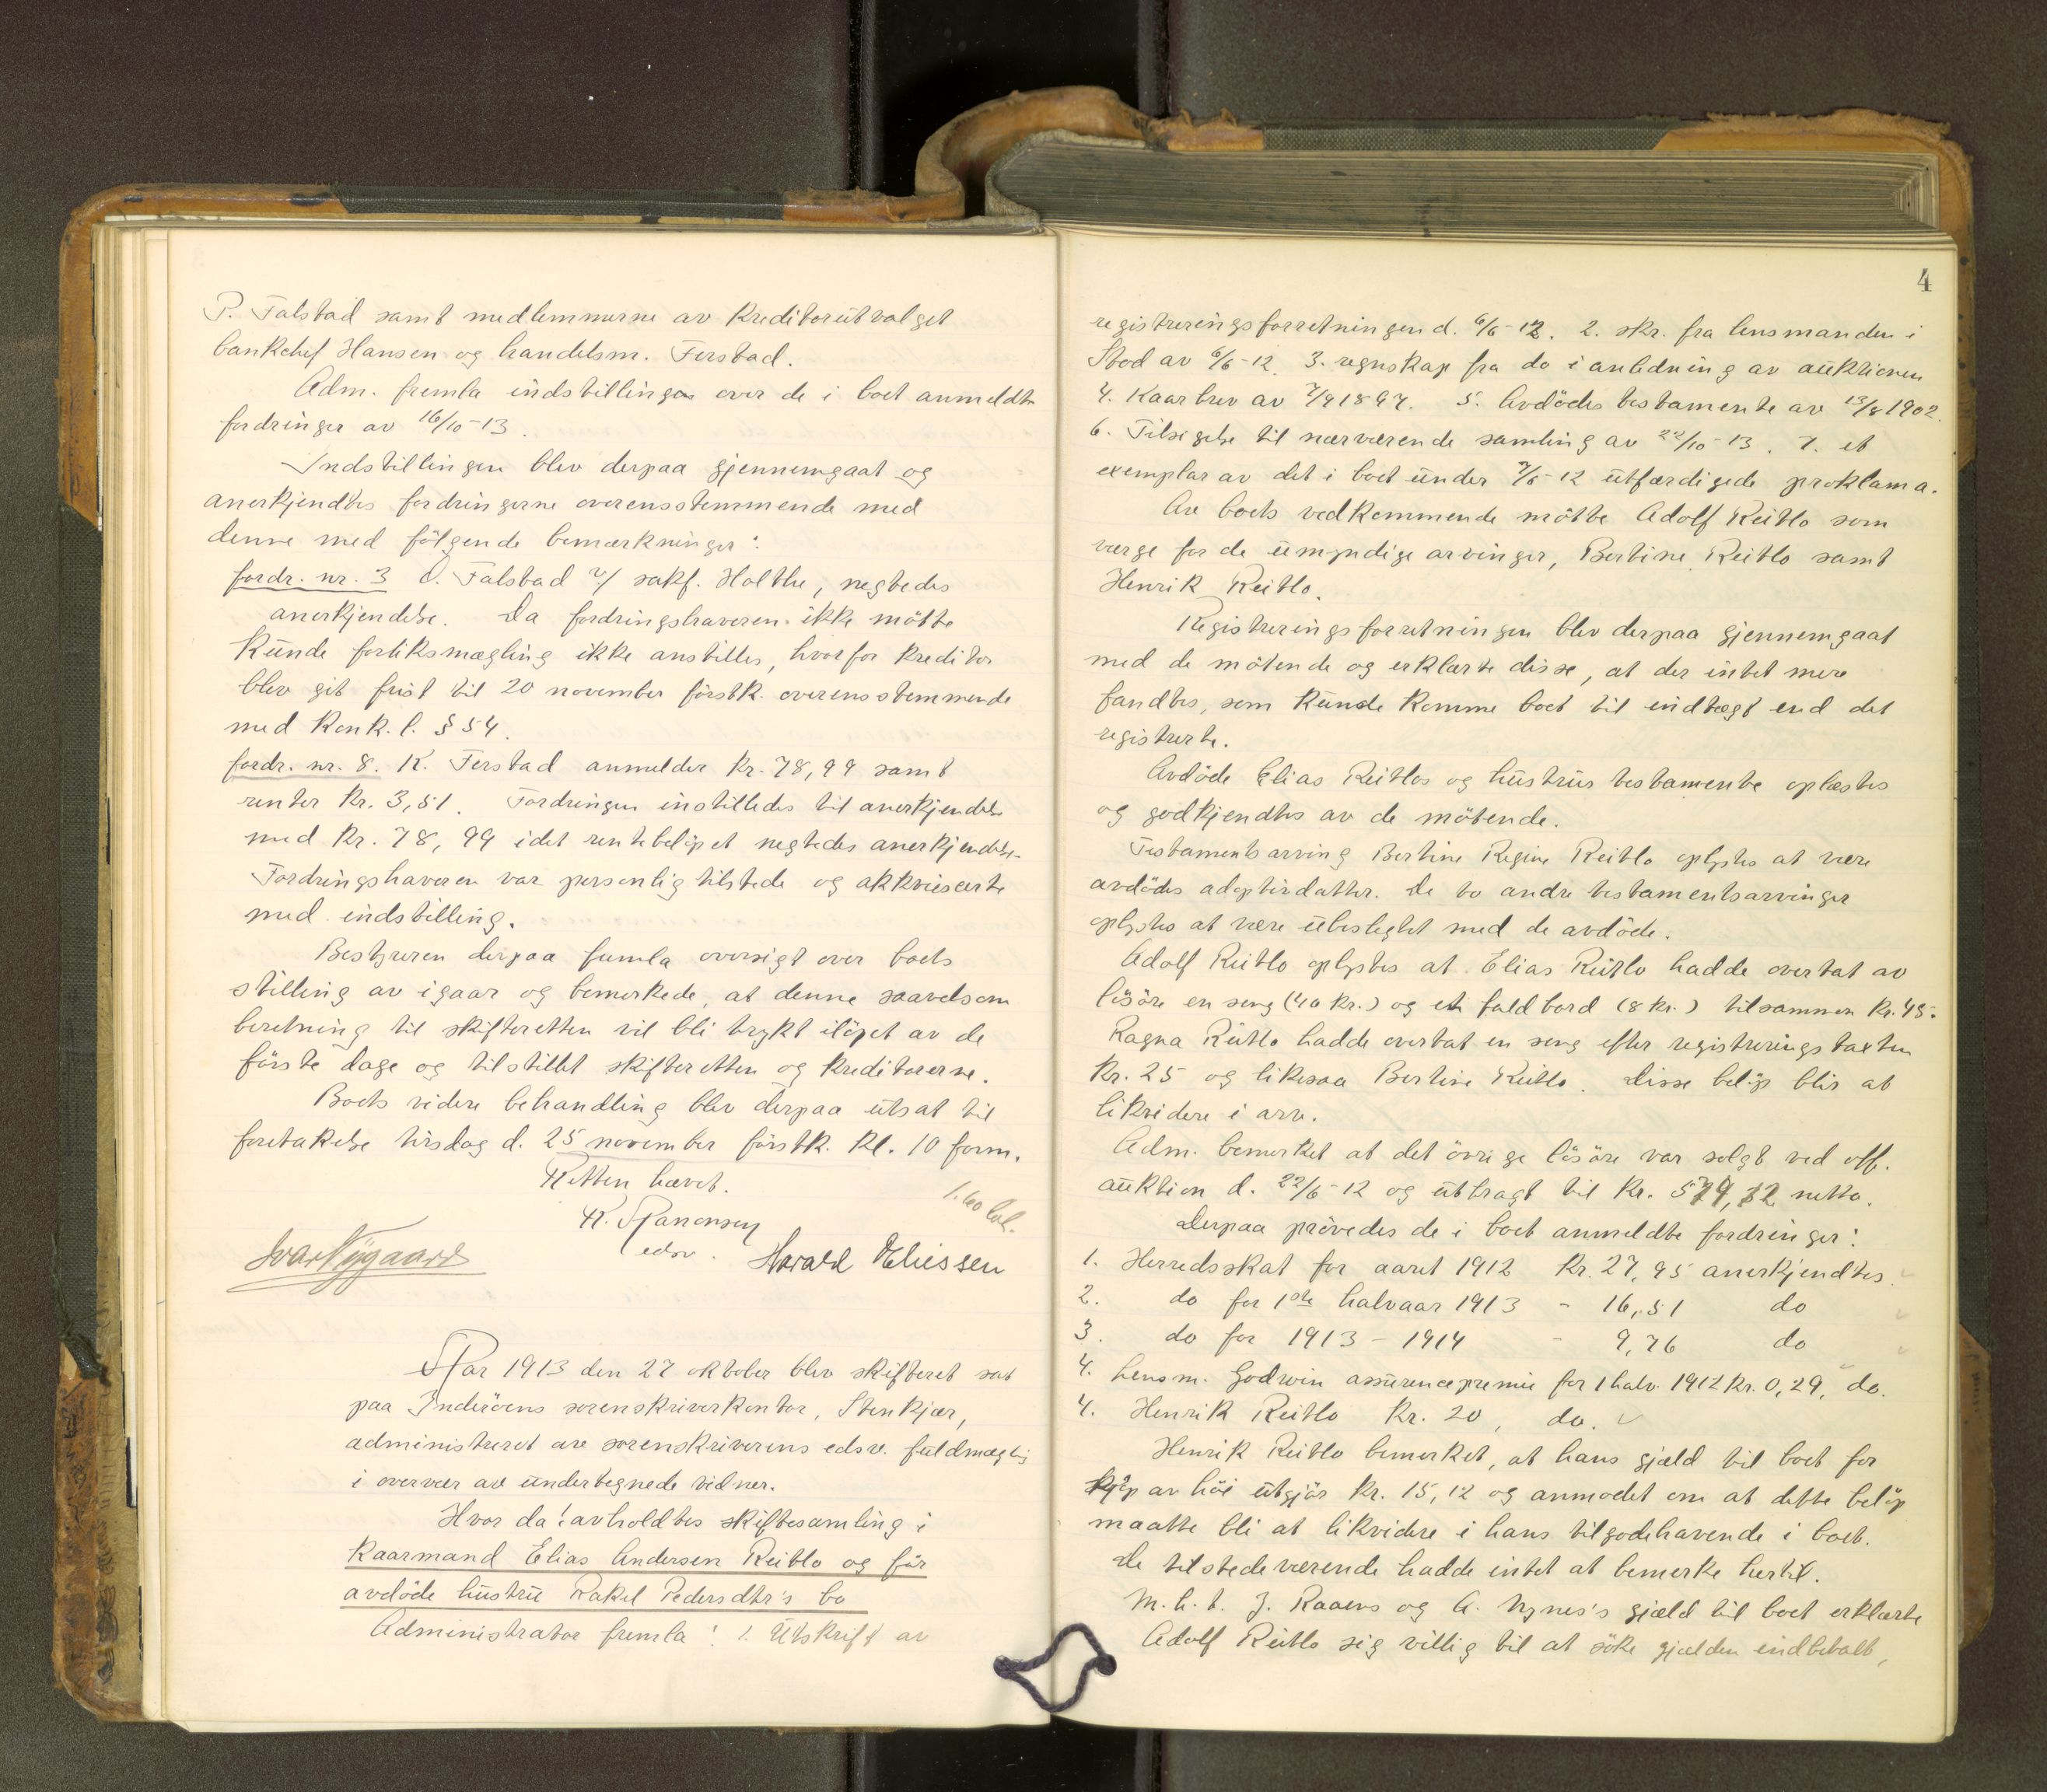 P. Falstad samt medlemmerne av kreditorutvalget
bankchef Hansen og handelsm. Ferstad.
Adm. fremla indstillingen over de i boet anmeldte
fordringer av 16/10-13.
Indstillingen blev derpaa gjennemgaat og
anerkjendtes fordringerne overensstemmende med
denne med følgende bemærkninger:
fordr. nr. 3 O. Falstad v/ sakf. Holthe, negtedes
anerkjendelse. Da fordringshaveren ikke møtte
kunde forliksmægling ikke anstilles, hvorfor kreditor
blev git frist til 20 november førstk. overensstemmende
med Konk. l. § 54.
fordr. nr. 8. K. Ferstad anmelder kr. 78,99 samt
renter kr. 3,51. Fordringen instilledes til anerkjendelse
med kr. 78,99 idet rentebeløpet negtedes anerkjendelse.
Fordringshaveren var personlig tilstede og akkviescerte
med indstilling.
Bestyreren derpaa fremla oversigt over boets
stilling av igaar og bemerkede, at denne saavelsom
beretning til skifteretten vil bli trykt iløpet av de
første dage og tilstillet skifteretten og kreditorerne.
Boets videre behandling blev derpaa utsat til
foretakelse tirsdag d. 25 november førstk. kl. 10 form.
Retten hævet.
1.60 bet.
edsv. Harald Eliessen
Ivar Nygaard
Aar 1913 den 27 oktober blev skifteret sat
paa Inderøens sorenskriverkontor, Stenkjær,
administreret av sorenskriverens edsv. fuldmægtig
i overvær av undertegnede vidner.
Hvor da: avholdtes skiftesamling i
Kaarmand Elias Andersen Reitlo og før
avdøde hustru Rakel Pedersdtr's bo
Administrator fremla: 1. Utskrift av
4
registreringsforretningen d. 6/6-12. 2. skr. fra lensmanden i
Stod av 6/6-12. 3. regnskap fra do i anledning av auktionen
4. Kaarbrev av 7/9 1897. 5. Avdødes testamente av 13/8 1902.
6. Tilsigelse til nærværende samling av 22/10-13. 7. et
exemplar av det i boet under 7/6-12 utfærdigede proklama.
Av boets vedkommende møtte Adolf Reitlo som
værge for de umyndige arvinger, Bertine Reitlo samt
Henrik Reitlo.
Registreringsforretningen blev derpaa gjennemgaat
med de møtende og erklærte disse, at der intet mere
fandtes, som kunde komme boet til indtægt end det
registrerte.
Avdøde Elias Reitlos og hustrus testamente oplæstes
og godkjendtes av de møtende.
Testamentsarving Bertine Regine Reitlo oplystes at være
avdødes adoptivdatter. De to andre testamentsarvinger
oplystes at være ubeslegtet med de avdøde.
Adolf Reitlo oplystes at Elias Reitlo hadde overtat av
løsøre en seng (40 kr.) og et faldbord (8 kr.) tilsammen kr. 48.
Ragna Reitlo hadde overtat en seng efter registreringstaxten
kr. 25 og likesaa Bertine Reitlo. Disse beløp blir at
likvidere i arv.
Adm. bemerket at det øvrige løsøre var solgt ved off.
auktion d. 22/6-12 og utbragt til kr. netto.
Derpaa prøvedes de i boet anmeldte fordringer:
1. Herredsskat for aaret 1912 kr. 27,95 anerkjendtes.
2. do for 1ste halvaar 1913 - 16,51 do
3. do for 1913 - 1914 - 9,76 do
4. Lensm. Godwin assurancepremie for 1 halv. 1912 kr. 0,29, do.
4. Henrik Reitlo kr. 20, do.
Henrik Reitlo bemerket, at hans gjæld til boet for
kjøp av høi utgjør kr. 15,12 og anmodet om at dette beløp
maatte bli at likvidere i hans tilgodehavende i boet.
De tilstedeværende hadde intet at bemerke hertil.
M.h.t. J. Raaens og A. Nynes's gjæld til boet erklærte
Adolf Reitlo sig villig til at søke gjælden indbetalt,